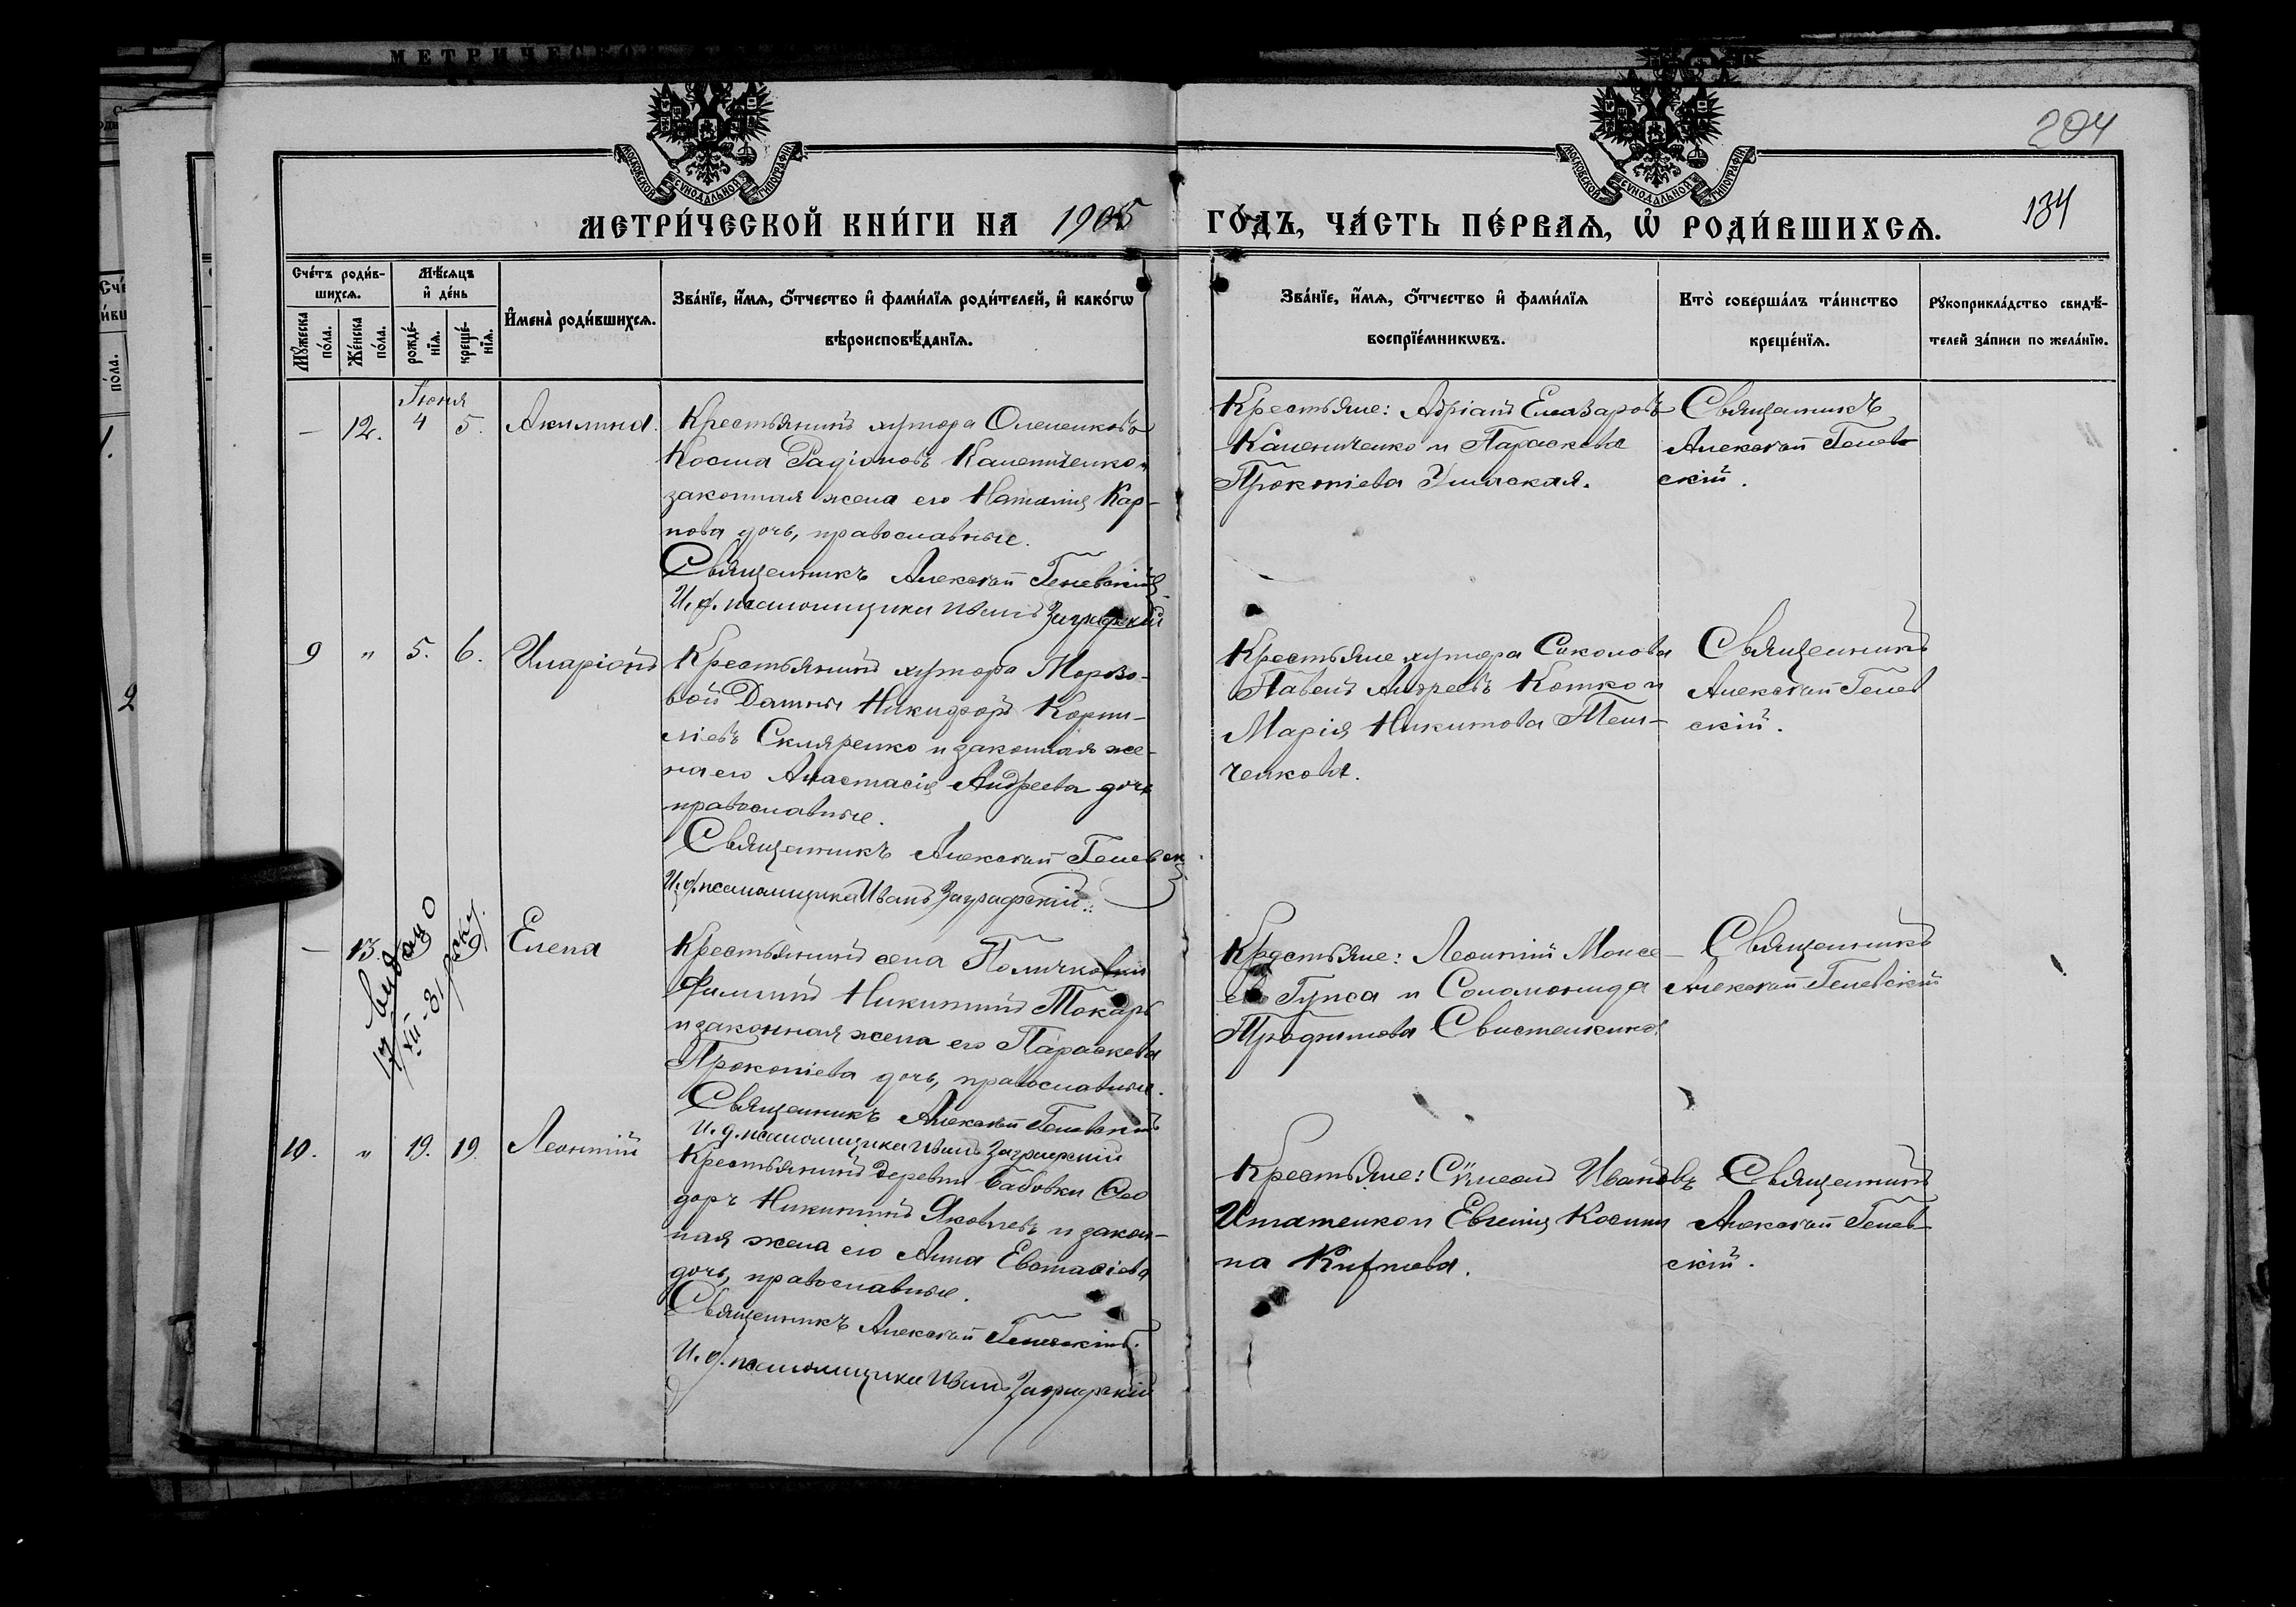 МЕТРИЧЕСКО
204
134
МОСКОВСКОЙ СѴНОДАЛЬНОЙ ТИПОГРАФІИ
МОСКОВСКОЙ СѴНОДАЛЬНОЙ ТИПОГРАФІИ
МЕТРИ́ЧЕСКОЙ КНИ́ГИ НА 1905 ГО́ДЪ, ЧА́СТЬ ПЕ́РВАѦ, Ѡ҆ РОДИ́ВШИХСѦ.
Сче́тъ роди́в-
шихсѧ.
Мꙋ́жеска по́ла.
Же́нска по́ла.
Мѣ́сѧцъ
и҆ де́нь
рожде́-
нїѧ.
креще́-
нїѧ.
И҆мена̀ роди́вшихсѧ.
Зва́нїе, и҆́мѧ, ѻ҆́тчество и҆ фами́лїѧ роди́телей, и҆ како́гѡ
вѣроисповѣ́данїѧ.
Зва́нїе, и҆́мѧ, ѻ҆́тчество и҆ фами́лїѧ
воспрїе́мникѡвъ.
Кто̀ соверша́лъ та́инство
креще́нїѧ.
Рꙋкоприкла́дство свидѣ́-
телей за́писи по жела́нїю.
Іюня
— 12. 4 5. Акилина.
Крестьянинъ хутора Олененковъ
Косма Радіоновъ Калениченко и
законная жена его Наталія Кар-
пова дочь, православные.
Священникъ Алексій Геневскій
И. д. псаломщика Иванъ Заграфскій
Крестьяне: Адріанъ Елеазаровъ
Калениченко и Параскева
Прокопіева
Священникъ
Алексій Генев
скій.
9 " 5. 6. Иларіонъ
Крестьянинъ хутора Морозо-
вой Даты Никифоръ Корни-
ліевъ Скляренко и законная же-
на его Анастасія Андреева дочь
православные.
Священникъ Алексій Геневск
И. д. псаломщика Иванъ Заграфскій
Крестьяне хутора Соколова
Павелъ Андреевъ Котко и
Марія Никитова
ченкова.
Священникъ
Алексій Генев
скій.
— 13. 9 9 Елена
видано
17/XII-31
Крестьянинъ села Поличковки
Филиппъ Никитинъ Токарь
и законная жена его Параскева
Прокопіева дочь, православные.
Священникъ Алексій Геневскій
И. д. псаломщика Иванъ Заграфскій
Крестьяне: Леонтій Моисе-
евъ Гупса и Соломонида
Трофимова Свистелкина
Священникъ
Алексій Геневскій
10. " 19. 19. Леонтій
Крестьянинъ деревни Бабовки Ѳео
доръ Никитинъ Яковлевъ и закон-
ная жена его Анна Евстафіева
дочь, православные.
Священникъ Алексій Геневскій
И. д. псаломщика Иванъ Заграфскій
Крестьяне: Сѵмеонъ Ивановъ
Игнатенко и Евгенія Косми
на
Священникъ
Алексій Генев-
скій.